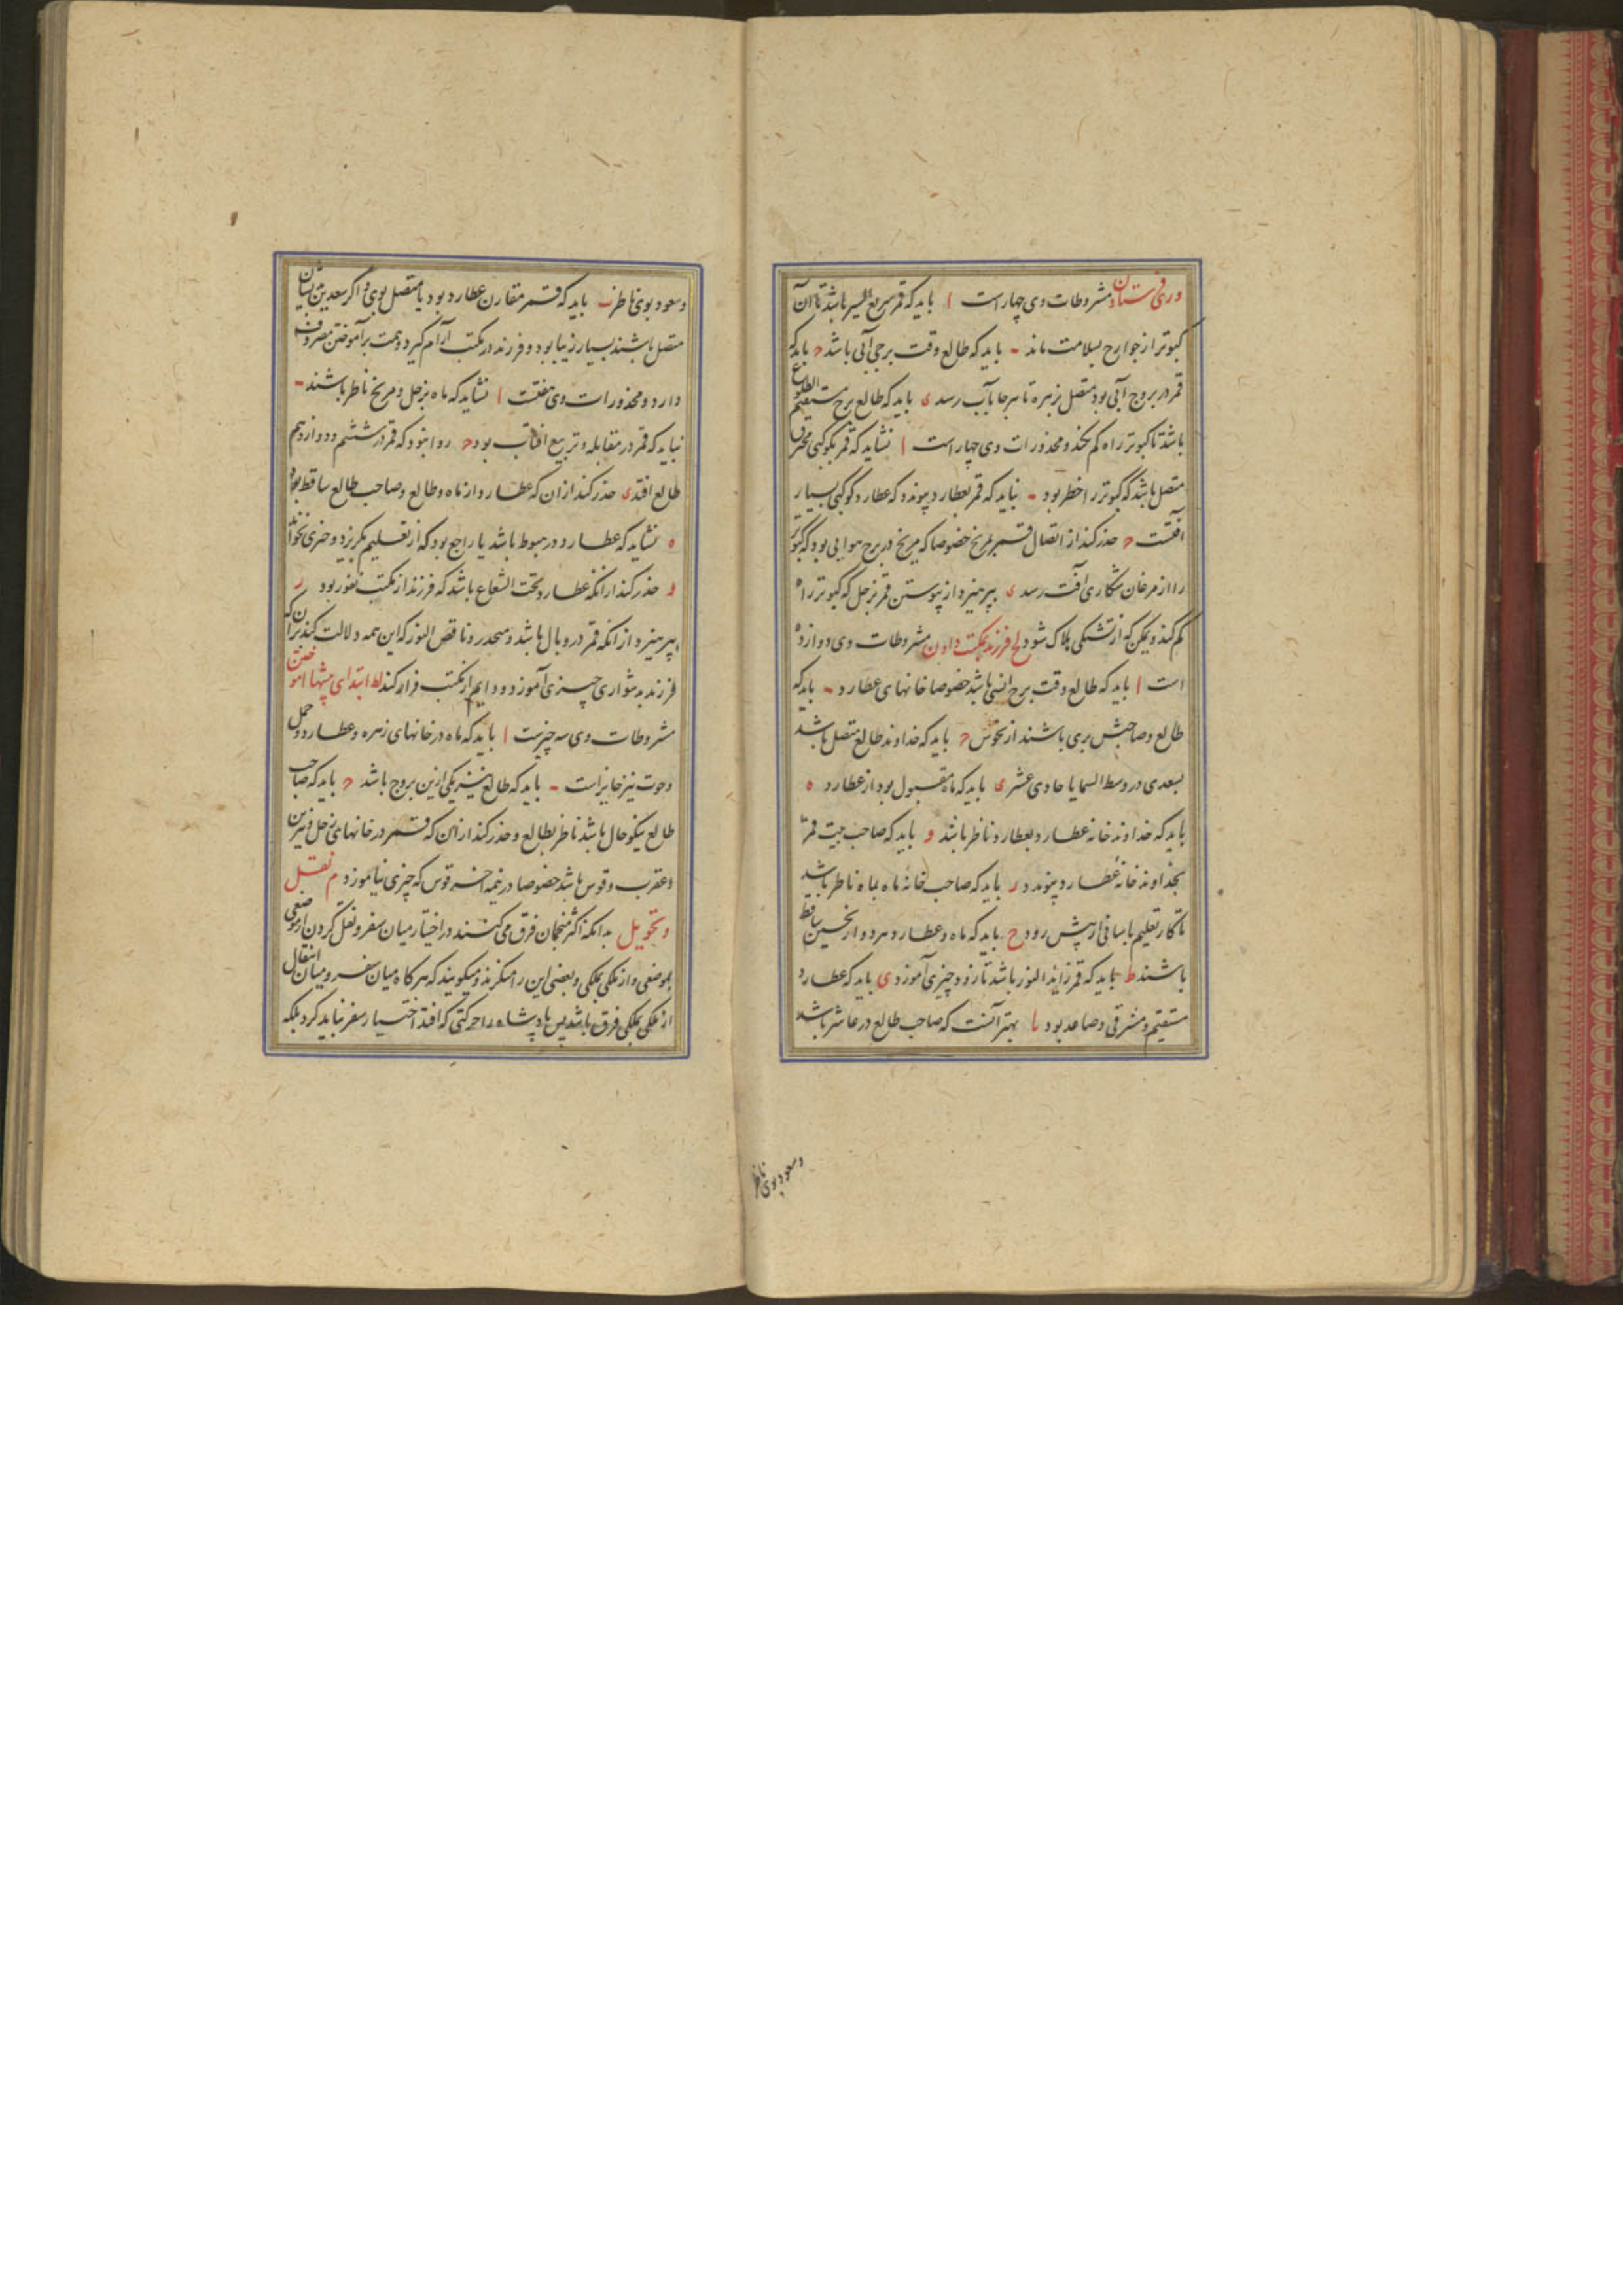 و رقی فرستادن مشروطات وی چهار است ا باید که قمر سریع السیر باشد تا آن
کبوتر از جوارح بسلامت ماند ب باید که طالع وقت برجی آبی باشد ح باید که
قمر در بروج آبی بود متصل بزهره تا هر جا بآب رسد ی باید که طالع برج مستقیم الطلوع
باشد تا کبوتر راه کم نکند و محذورات وی چهار است ا نشاید که قمر بکوکبی محترق
متصل باشد که کبوتر را خطر بود ب نباید که قمر بعطارد پیوندد که عطارد کوکبی بسیار
آفتست ح حذر کند از اتصال قمر بمریخ خصوصا که مریخ در برج هوایی بود که کبوتر
را از مرغان شکاری آفت رسد ی بپرهیزد از پیوستن قمر بزحل که کبوتر راه
کم کند و ممکن که از تشنکی هلاک شود لح فرزند بمکتب دادن مشروطات وی دوازده
است ا باید که طالع وقت برج انسی باشد خصوصا خانهای عطارد ب باید که
طالع و صاحبش بری باشند از نحوس ح باید که خداوند طالع متصل باشد
بسعدی در وسط السما یا حادی عشر ی باید که ماه مقبول بود از عطارد ه
باید که خداوند خانه عطارد بعطارد ناظر باشد و باید که صاحب بیت قمر
بخداوند خانه عطارد پیوندد ر باید که صاحب خانهٔ ماه بماه ناظر باشد
تا کار تعلیم بآسانی از پیش رود ح باید که ماه و عطارد هر دو از نحسین ساقط
باشند ط بباید که قمر زاید النور باشد تا زود چیزی آموزد ی باید که عطارد
مستقیم و مشرقی و صاعد بود یا بهتر آنست که صاحب طالع در عاشر باشد
وسعود بوی ناظر
وسعود بوی ناظر یب باید که قمر مقارن عطارد بود یا متصل بوی و اکر سعدین بایشان
متصل باشند بسیار زیبا بود و فرزند در مکتب آرام کیرد و همت بر آموختن مصروف
دارد و محذورات وی هفتست ا نشاید که ماه بزحل و مریخ ناظر باشند ب
نباید که قمر در مقابله و تربیع افتاب بود ح روا نبود که قمر در ششم و دوازدهم
طالع افتد ی حذر کند از ان که عطارد از ماه و طالع و صاحب طالع ساقط بود
ه نشاید که عطارد در هبوط باشد یا راجع بود که از تعلیم بکریزد و چیزی نخواند
و حذر کند از انکه عطارد تحت الشعاع باشد که فرزند از مکتب نفور بود ر
بپرهیزد از انکه قمر در وبال باشد و منحدر و ناقص النور که این همه دلالت کند بر آن که
فرزند بدشواری چیزی آموزد و دایم از مکتب فرار کند لط ابتدای پیشها آموختن
مشروطات وی سه چیزست ا باید که ماه در خانهای زهره و عطارد و حمل
و حوت نیز جایز است ب باید که طالع نیز یکی ازین بروج باشد ح باید که صاحب
طالع نیکو حال باشد ناظر بطالع و حذر کند از ان که قمر در خانهای زحل و نیرین
و عقرب و قوس باشد خصوصا در نیمه اخر قوس که چیزی نیاموزد م نقل
و تحویل بدانکه اکثر منجمان فرق می کنند در اختیار میان سفر و نقل کردن از موضعی
بموضعی و از ملکی بملکی و بعضی این را منکرند و میکویند که هر کاه میان سفر و میان انتقال
از ملکی بملکی فرق باشد پس پادشاه را حرکتی که افتد اختیار سفر نباید کرد بلکه